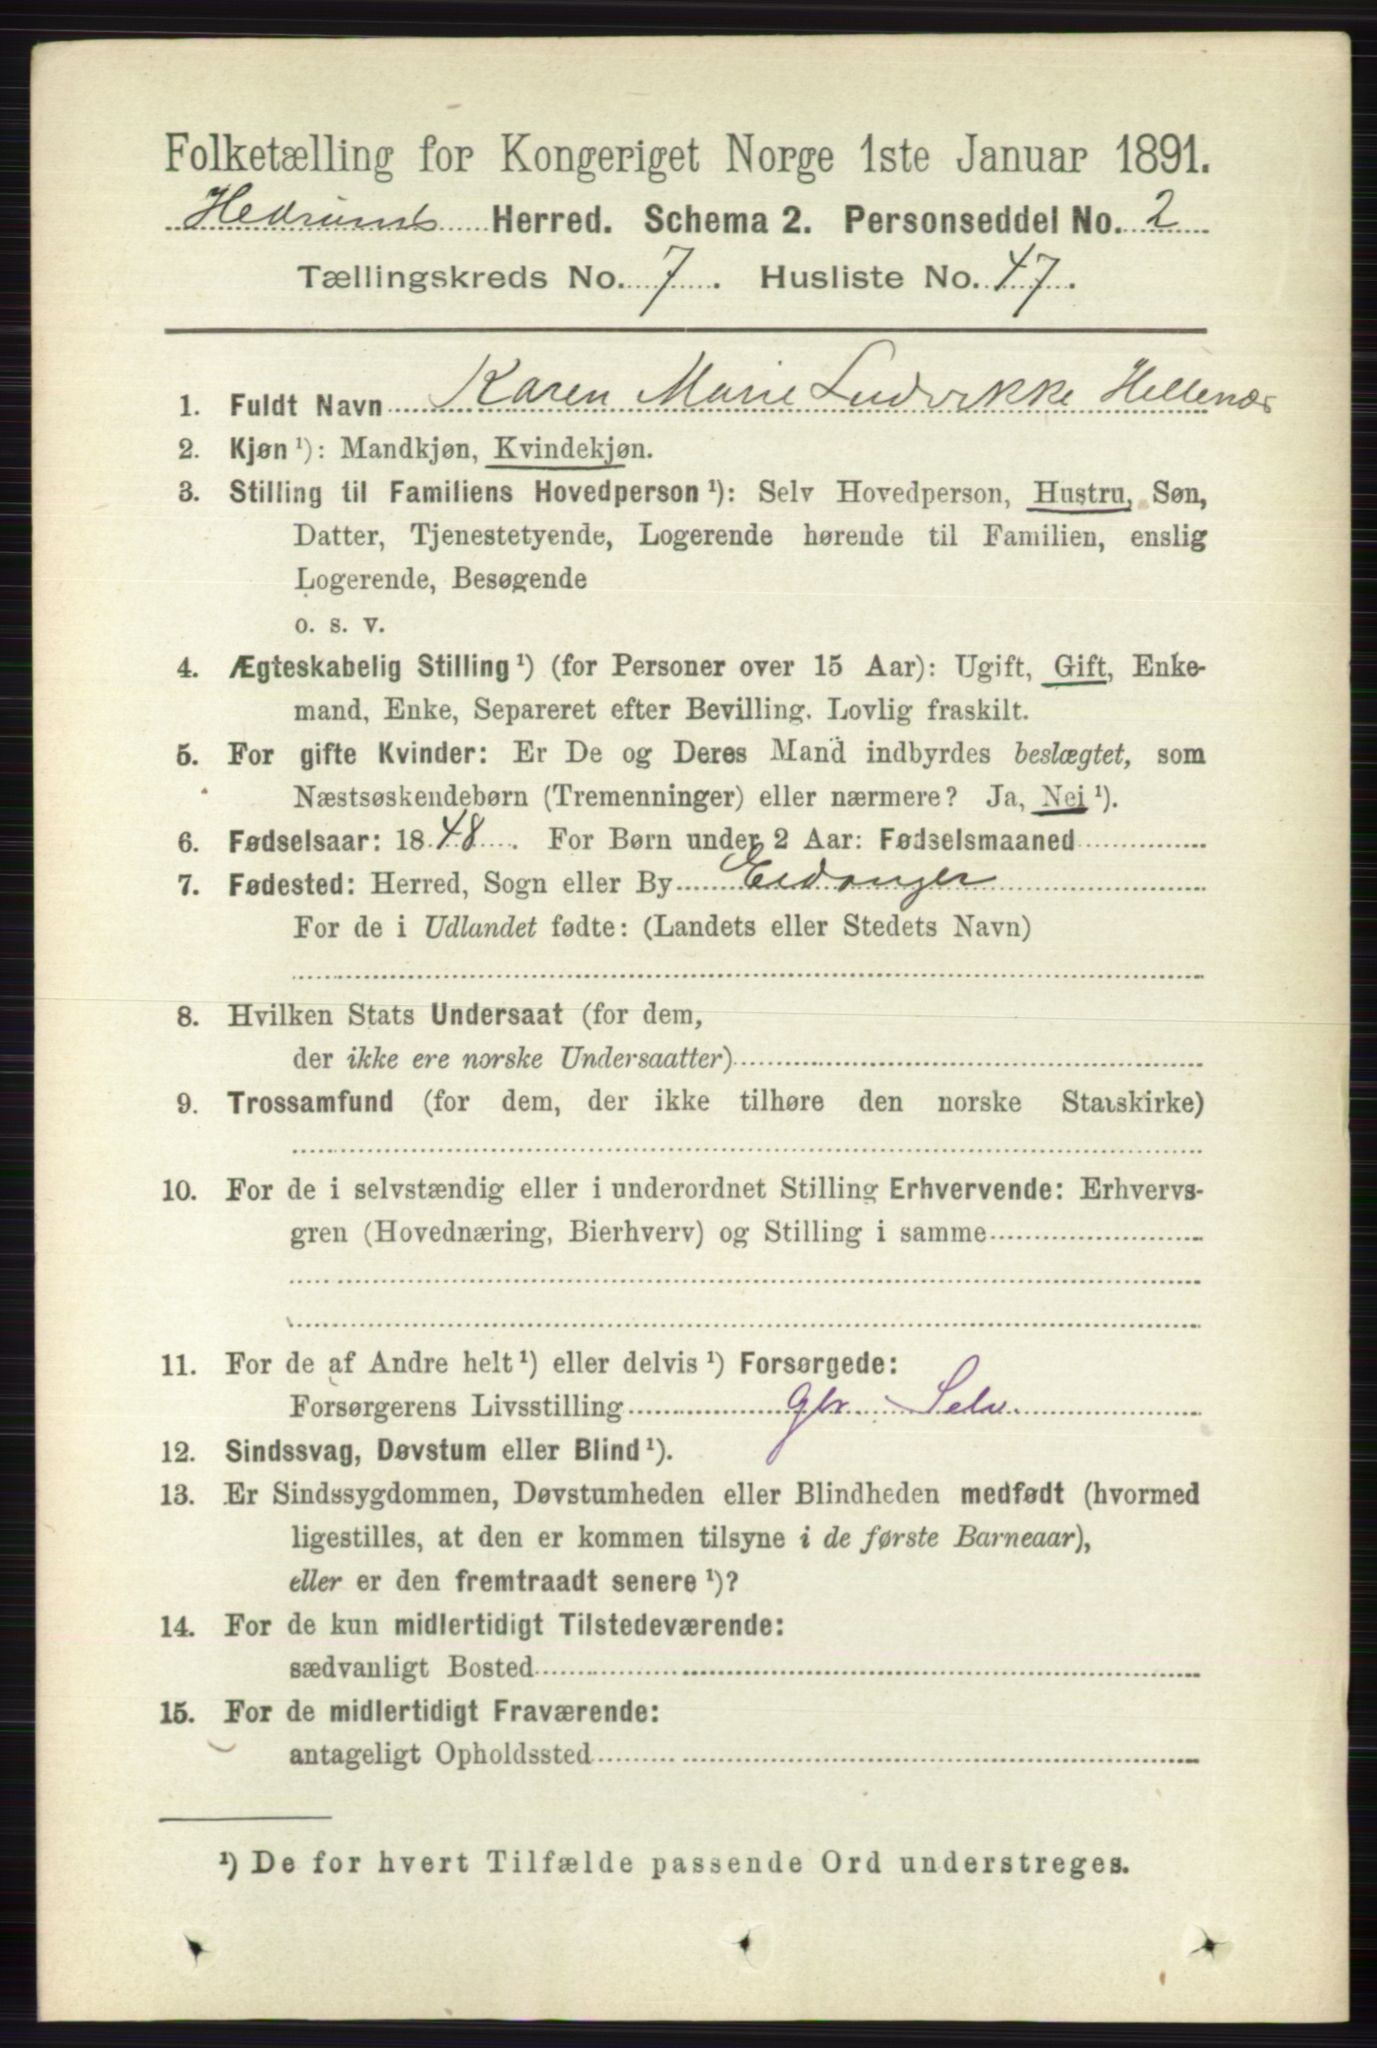 Folketælling for Kongeriget Norge 1ste Januar 1891.
Hedrums Herred. Schema 2. Personseddel No. 2
Tællingskreds No. 7. Husliste No. 47.
1. Fuldt Navn Karen Marie Ludvikke Hellenæs
2. Kjøn ¹): Mandkjøn, Kvindekjøn.
3. Stilling til Familiens Hovedperson ¹): Selv Hovedperson, Hustru, Søn,
Datter, Tjenestetyende, Logerende hørende til Familien, enslig
Logerende, Besøgende
o. s. v.
4. Ægteskabelig Stilling ¹) (for Personer over 15 Aar): Ugift, Gift, Enke-
mand, Enke, Separeret efter Bevilling. Lovlig fraskilt.
5. For gifte Kvinder: Er De og Deres Mand indbyrdes beslægtet, som
Næstsøskendebørn (Tremenninger) eller nærmere? Ja, Nei ¹).
6. Fødselsaar: 1848. For Børn under 2 Aar: Fødselsmaaned
7. Fødested: Herred, Sogn eller By Eidanger
For de i Udlandet fødte: (Landets eller Stedets Navn)
8. Hvilken Stats Undersaat (for dem,
der ikke ere norske Undersaatter)
9. Trossamfund (for dem, der ikke tilhøre den norske Statskirke)
10. For de i selvstændig eller i underordnet Stilling Erhvervende: Erhvervs-
gren (Hovednæring, Bierhverv) og Stilling i samme
11. For de af Andre helt ¹) eller delvis ¹) Forsørgede:
Forsørgerens Livsstilling Gbr. Selv.
12. Sindssvag, Døvstum eller Blind ¹).
13. Er Sindssygdommen, Døvstumheden eller Blindheden medfødt (hvormed
ligestilles, at den er kommen tilsyne i de første Barneaar),
eller er den fremtraadt senere ¹)?
14. For de kun midlertidigt Tilstedeværende:
sædvanligt Bosted
15. For de midlertidigt Fraværende:
antageligt Opholdssted
¹) De for hvert Tilfælde passende Ord understreges.